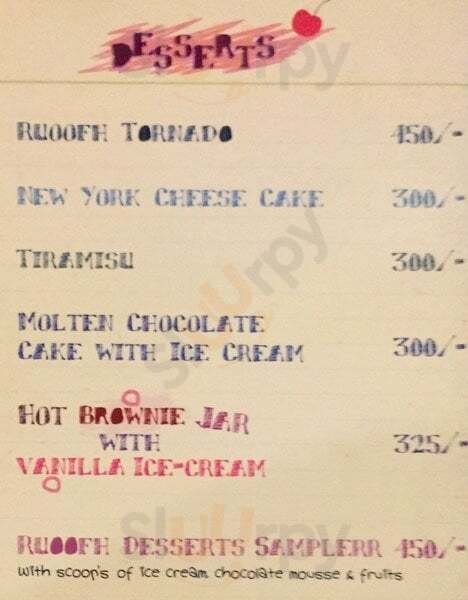 DESSERTS
RUOOFH TORNADO 450/-
NEW YORK CHEESE CAKE 300/-
TIRAMISU 300/-
MOLTEN CHOCOLATE
CAKE WITH ICE CREAM 300/-
HOT BROWNIE JAR
WITH 325/-
VANILLA ICE-CREAM
RUOOFH DESSERTS SAMPLERR 450/-
with scoop's of ice cream, chocolate mousse & fruits
Slurpy
Slurpy
Slurpy